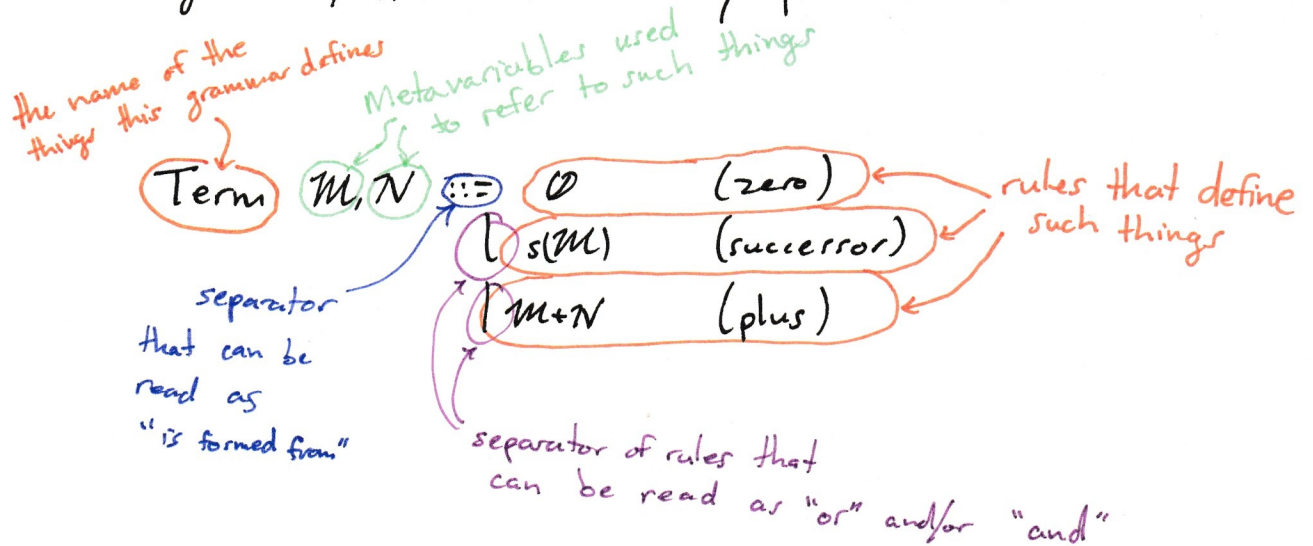 the name of the
things this grammar defines
Metavariables used
to refer to such things
Term M, N ::= 0 (zero)
| s(M) (successor)
| M+N (plus)
rules that define
such things
separator
that can be
read as
"is formed from"
separator of rules that
can be read as "or" and/or "and"